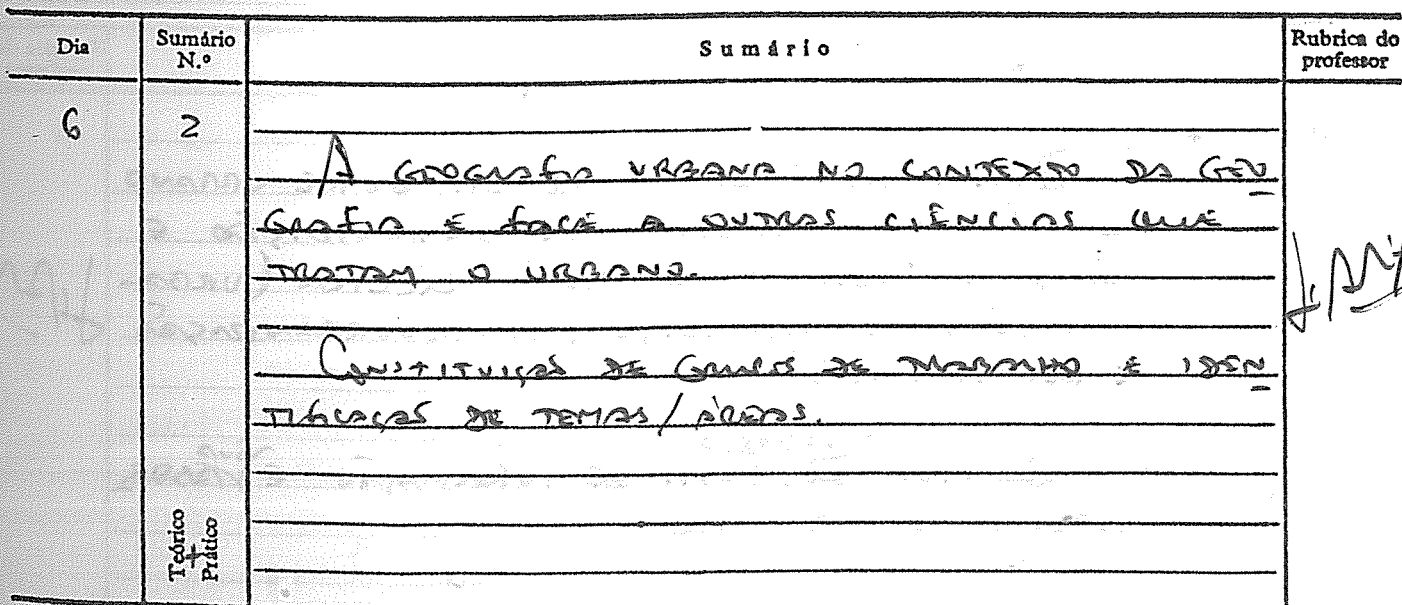 Dia Sumário N.º Sumário Rubrica do professor
6 2
A GEOGRAFIA URBANA NO CONTEXTO DA GEO
GRAFIA E FACE A OUTRAS CIÊNCIAS QUE
TRATAM O URBANO.
CONSTITUIÇÃO DE GRUPOS DE TRABALHO E IDEN
TIFICAÇÃO DE TEMAS / ÁREAS.
Teórico + Prático